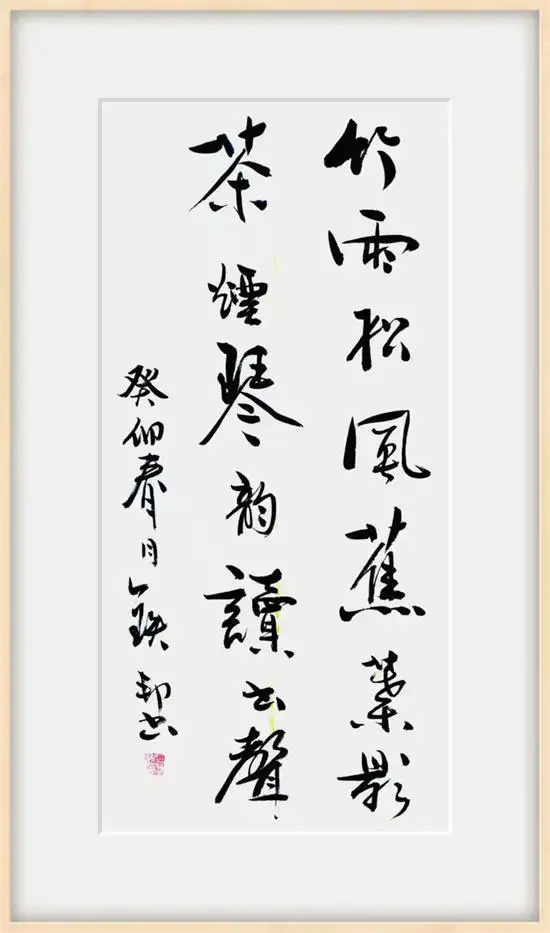 竹雨松風蕉葉影
茶煙琴韻讀書聲
癸卯春月